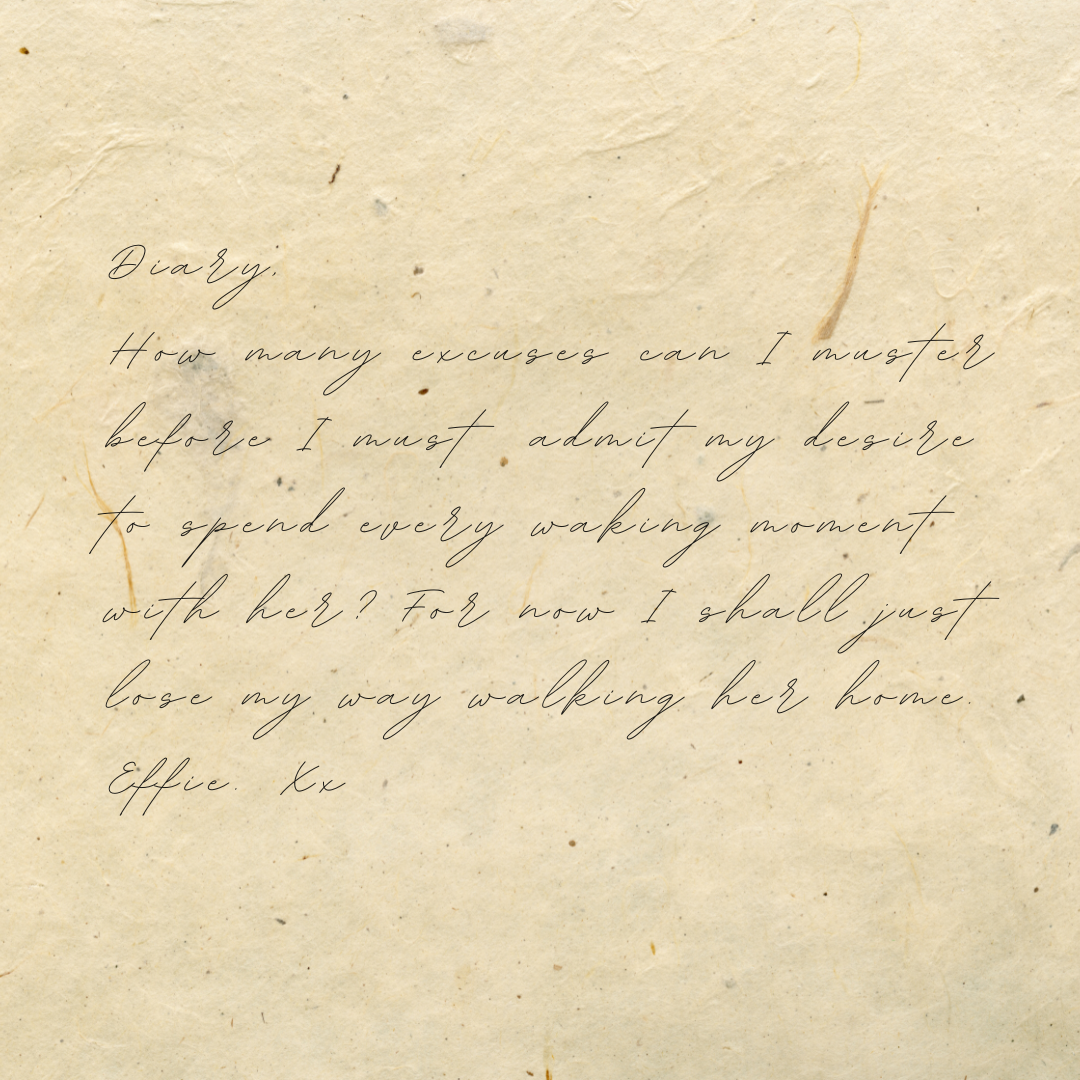 Diary,
How many excuses can I muster
before I must admit my desire
to spend every waking moment
with her? For now I shall just
lose my way walking her home.
Effie. Xx